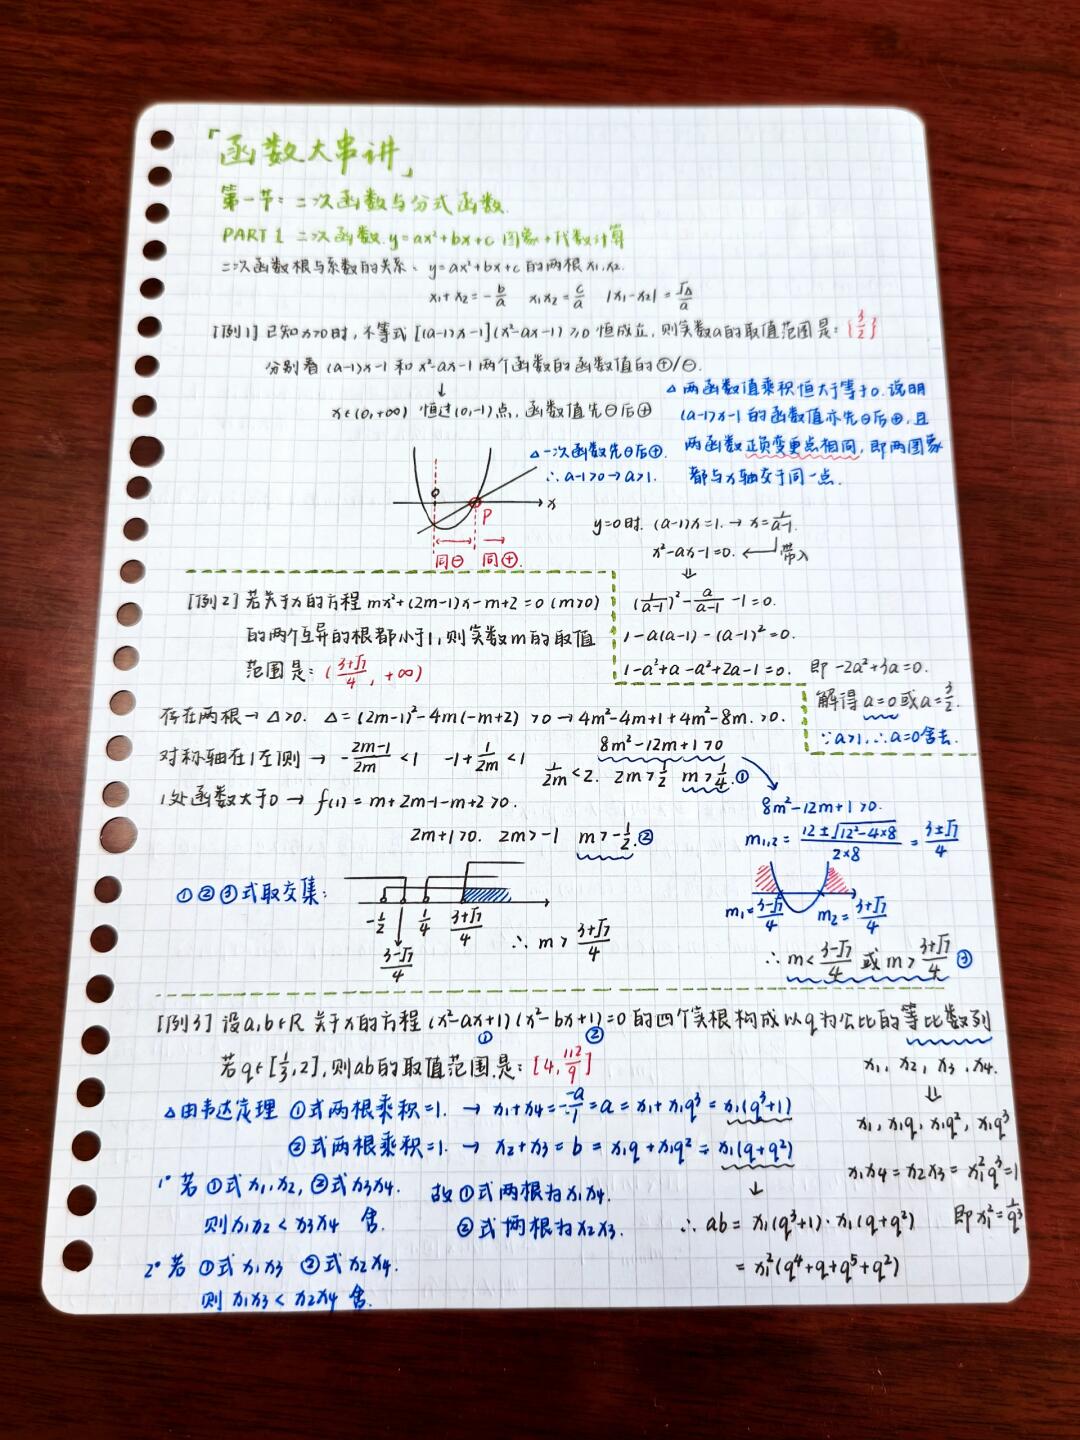 「函数大串讲」
第一节：二次函数与分式函数.
PART 1 二次函数.y=ax²+bx+c 图象+代数计算
二次函数根与系数的关系、y=ax²+bx+c的两根x₁.x₂.
x₁+x₂=-b/a x₁x₂=c/a |x₁-x₂|=√Δ/a
[例1] 已知x>0时,不等式[(a-1)x-1](x²-ax-1)≥0恒成立,则实数a的取值范围是:{3/2}
分别看(a-1)x-1和x²-ax-1两个函数的函数值的⊕/⊖.
↓
x∈(0,+∞) 恒过(0,-1)点,函数值先⊖后⊕
△两函数值乘积恒大于等于0.说明
(a-1)x-1的函数值亦先⊖后⊕,且
两函数正负变更点相同,即两图象
都与x轴交于同一点.
△一次函数先⊖后⊕.
∴a-1>0→a>1.
O P x
同⊖ 同⊕.
y=0时.(a-1)x=1.→x=1/(a-1).
x²-ax-1=0. ← 带入
⇓
(1/(a-1))²-a/(a-1)-1=0.
1-a(a-1)-(a-1)²=0.
1-a²+a-a²+2a-1=0. 即-2a²+3a=0.
解得a=0或a=3/2.
∵a>1.∴a=0舍去.
[例2] 若关于x的方程mx²+(2m-1)x-m+2=0 (m>0)
的两个互异的根都小于1,则实数m的取值
范围是:((3+√7)/4,+∞)
存在两根→Δ>0. Δ=(2m-1)²-4m(-m+2)>0→4m²-4m+1+4m²-8m.>0.
8m²-12m+1>0
对称轴在1左侧→-(2m-1)/2m<1 -1+1/2m<1 1/2m<2. 2m>1/2 m>1/4.①
1处函数大于0→f(1)=m+2m-1-m+2>0.
2m+1>0. 2m>-1 m>-1/2.②
8m²-12m+1>0.
m₁,₂=(12±√(12²-4×8))/(2×8)=(3±√7)/4
m₁=(3-√7)/4 m₂=(3+√7)/4
∴m<(3-√7)/4或m>(3+√7)/4 ③
①②③式取交集:
-1/2 (3-√7)/4 1/4 (3+√7)/4
∴m>(3+√7)/4
[例3] 设a,b∈R 关于x的方程(x²-ax+1)(x²-bx+1)=0的四个实根构成以q为公比的等比数列
① ②
若q∈[1/3,2],则ab的取值范围是:[4,112/9]
x₁、x₂、x₃、x₄.
⇓
x₁,x₁q,x₁q²,x₁q³
x₁x₄=x₂x₃=x₁²q³=1
即x₁²=1/q³
△由韦达定理 ①式两根乘积=1. → x₁+x₄=-(-a)/1=a=x₁+x₁q³=x₁(q³+1)
②式两根乘积=1. → x₂+x₃=b=x₁q+x₁q²=x₁(q+q²)
↓
1°若①式x₁,x₂,②式x₃x₄.
则x₁x₂<x₃x₄ 舍.
2°若 ①式x₁x₃ ②式x₂x₄.
则x₁x₃<x₂x₄ 舍.
故①式两根为x₁x₄.
②式两根为x₂x₃.
∴ab=x₁(q³+1)·x₁(q+q²)
=x₁²(q⁴+q+q⁵+q²)